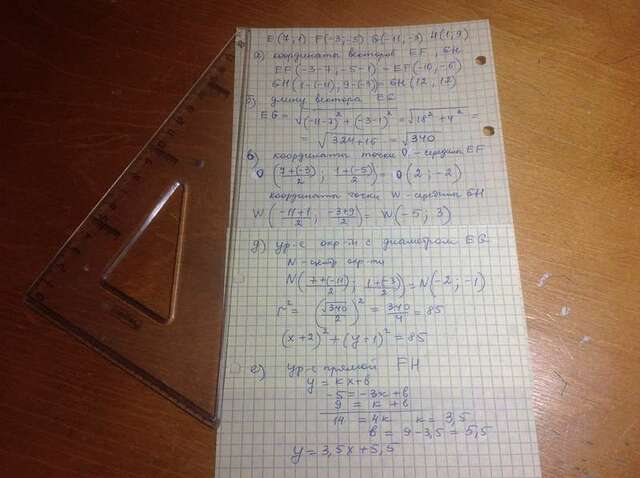 E(7; 1) F(-3; -5) G(-11; -3) H(1; 9)
а) координаты векторов EF, GH
EF(-3-7; -5-1) = EF(-10; -6)
GH(1-(-11); 9-(-3)) = GH(12; 12)
б) длину вектора EG
EG = √((-11-7)² + (-3-1)²) = √(18² + 4²) =
= √(324+16) = √340
в) координаты точки O - середины EF
O((7+(-3))/2; (1+(-5))/2) = O(2; -2)
координаты точки W - середины GH
W((-11+1)/2; (-3+9)/2) = W(-5; 3)
д) ур-е окр-ти с диаметром EG
N - центр окр-ти
N((7+(-11))/2; (1+(-3))/2) = N(-2; -1)
r² = (√340/2)² = 340/4 = 85
(x+2)² + (y+1)² = 85
е) ур-е прямой FH
y = kx+b
-5 = -3k+b
9 = k+b
14 = 4k k = 3,5
b = 9-3,5 = 5,5
y = 3,5x+5,5